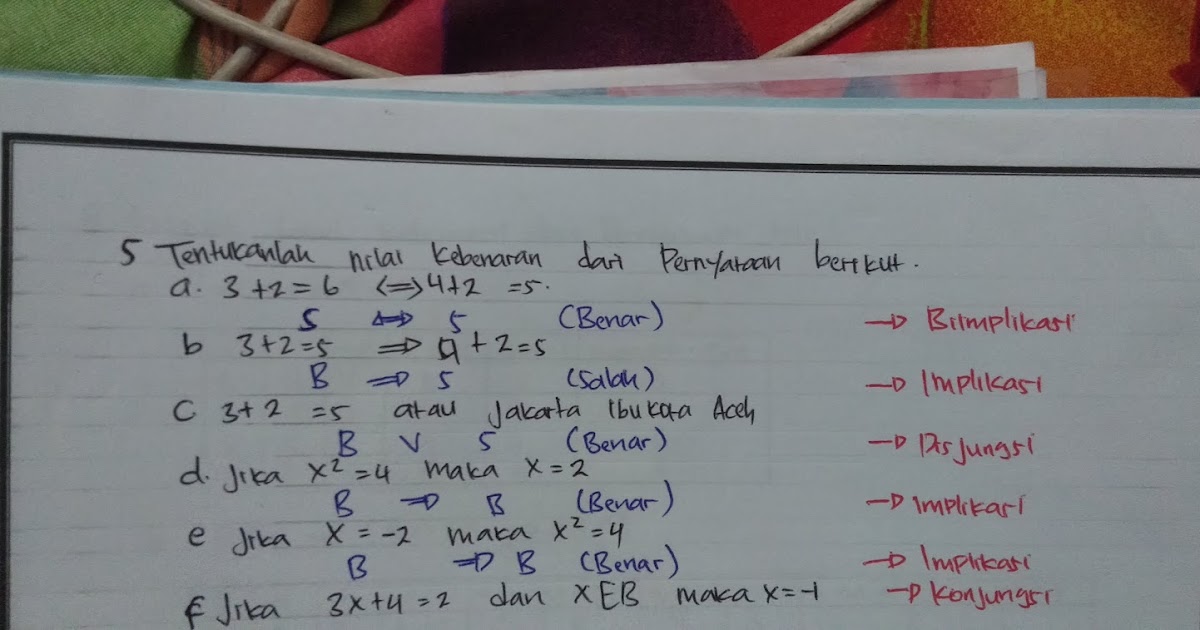 5 Tentukanlah nilai kebenaran dari Pernyataan berikut.
a. 3 + 2 = 6 <=> 4+2 = 5.
S <=> S (Benar) → Biimplikasi
b 3+2=5 => 4 + 2 = 5
B => S (Salah) → Implikasi
C 3+2 = 5 atau Jakarta Ibukota Aceh
B V S (Benar) → Disjungsi
d. Jika x² = 4 maka x = 2
B => B (Benar) → Implikasi
e Jika x = -2 maka x² = 4
B => B (Benar) → Implikasi
f Jika 3x+4 = 2 dan x E B maka x = -1 → Konjungsi